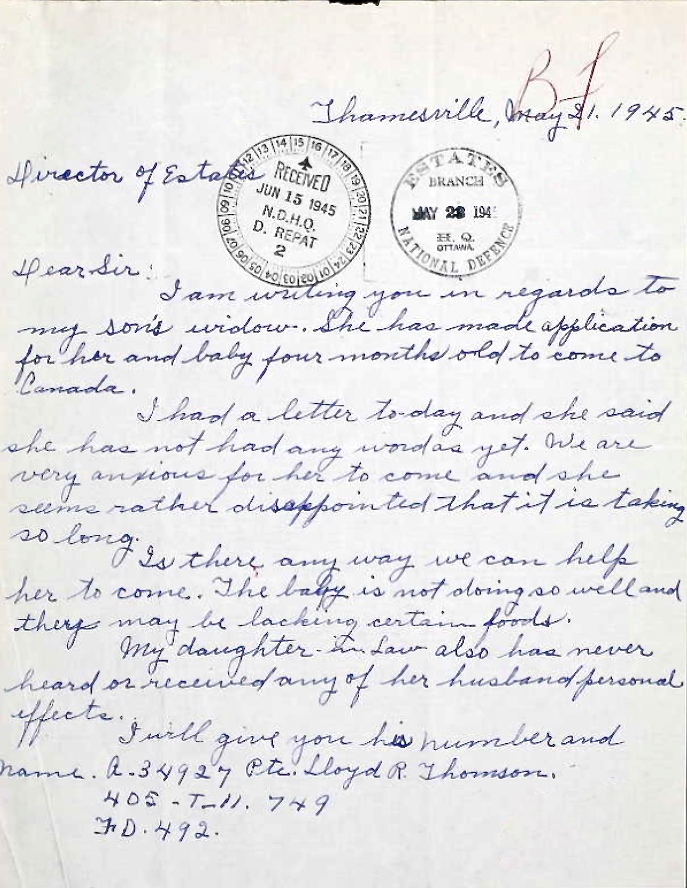 B.F
Thamesville, May 21. 1945.
Director of Estates
RECEIVED
JUN 15 1945
N.D.H.Q.
D. REPAT
2
01 02 03 04 05 06 07 08 09 10 11 12 13 14 15 16 17 18 19 20 21 22 23 24
ESTATES
BRANCH
MAY 23 194
H.Q.
OTTAWA.
NATIONAL DEFENCE
Dear Sir:
I am writing you in regards to
my son's widow. She has made application
for her and baby four months old to come to
Canada.
I had a letter to-day and she said
she has not had any word as yet. We are
very anxious for her to come and she
seems rather disappointed that it is taking
so long.
Is there any way we can help
her to come. The baby is not doing so well and
they may be lacking certain foods.
My daughter-in-Law also has never
heard or received any of her husband personal
effects.
I will give you his number and
name. A-34927 Pte. Lloyd R. Thomson.
405-T-11. 749
FD. 492.